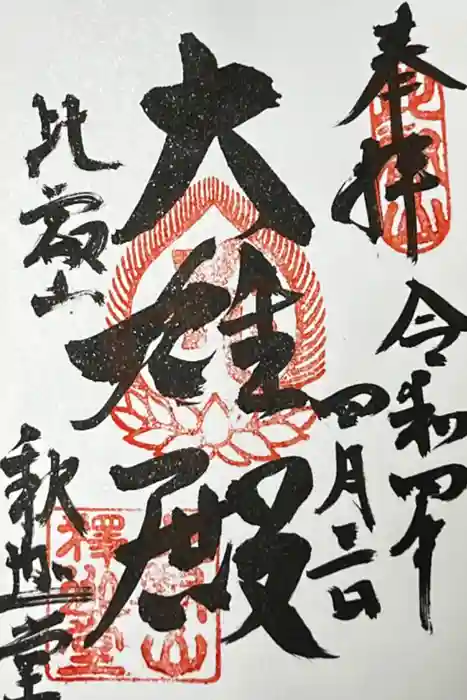 奉拝
令和四年
四月二日
大雄殿
比叡山
釈迦堂